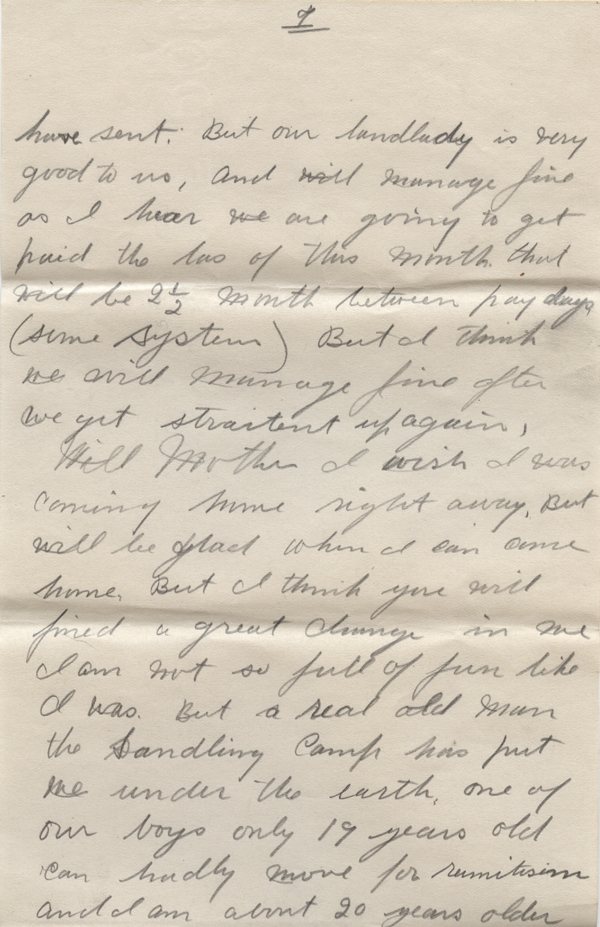 have sent. But our landlady is very
good to us, and will manage fine
as I hear we are going to get
paid the las of this month. that
will be 2½ month between pay days
(some system) But I think
we will manage fine after
we get straitent up again,
Will Mother I wish I was
coming home right away, But
will be glad when I can come
home, But I think you will
fined a great change in me
I am not so full of fun like
I was. But a real old man
the Sandling Camp has put
me under the earth, one of
our boys only 19 years old
can hadly move for rumitisim
and I am about 20 years older